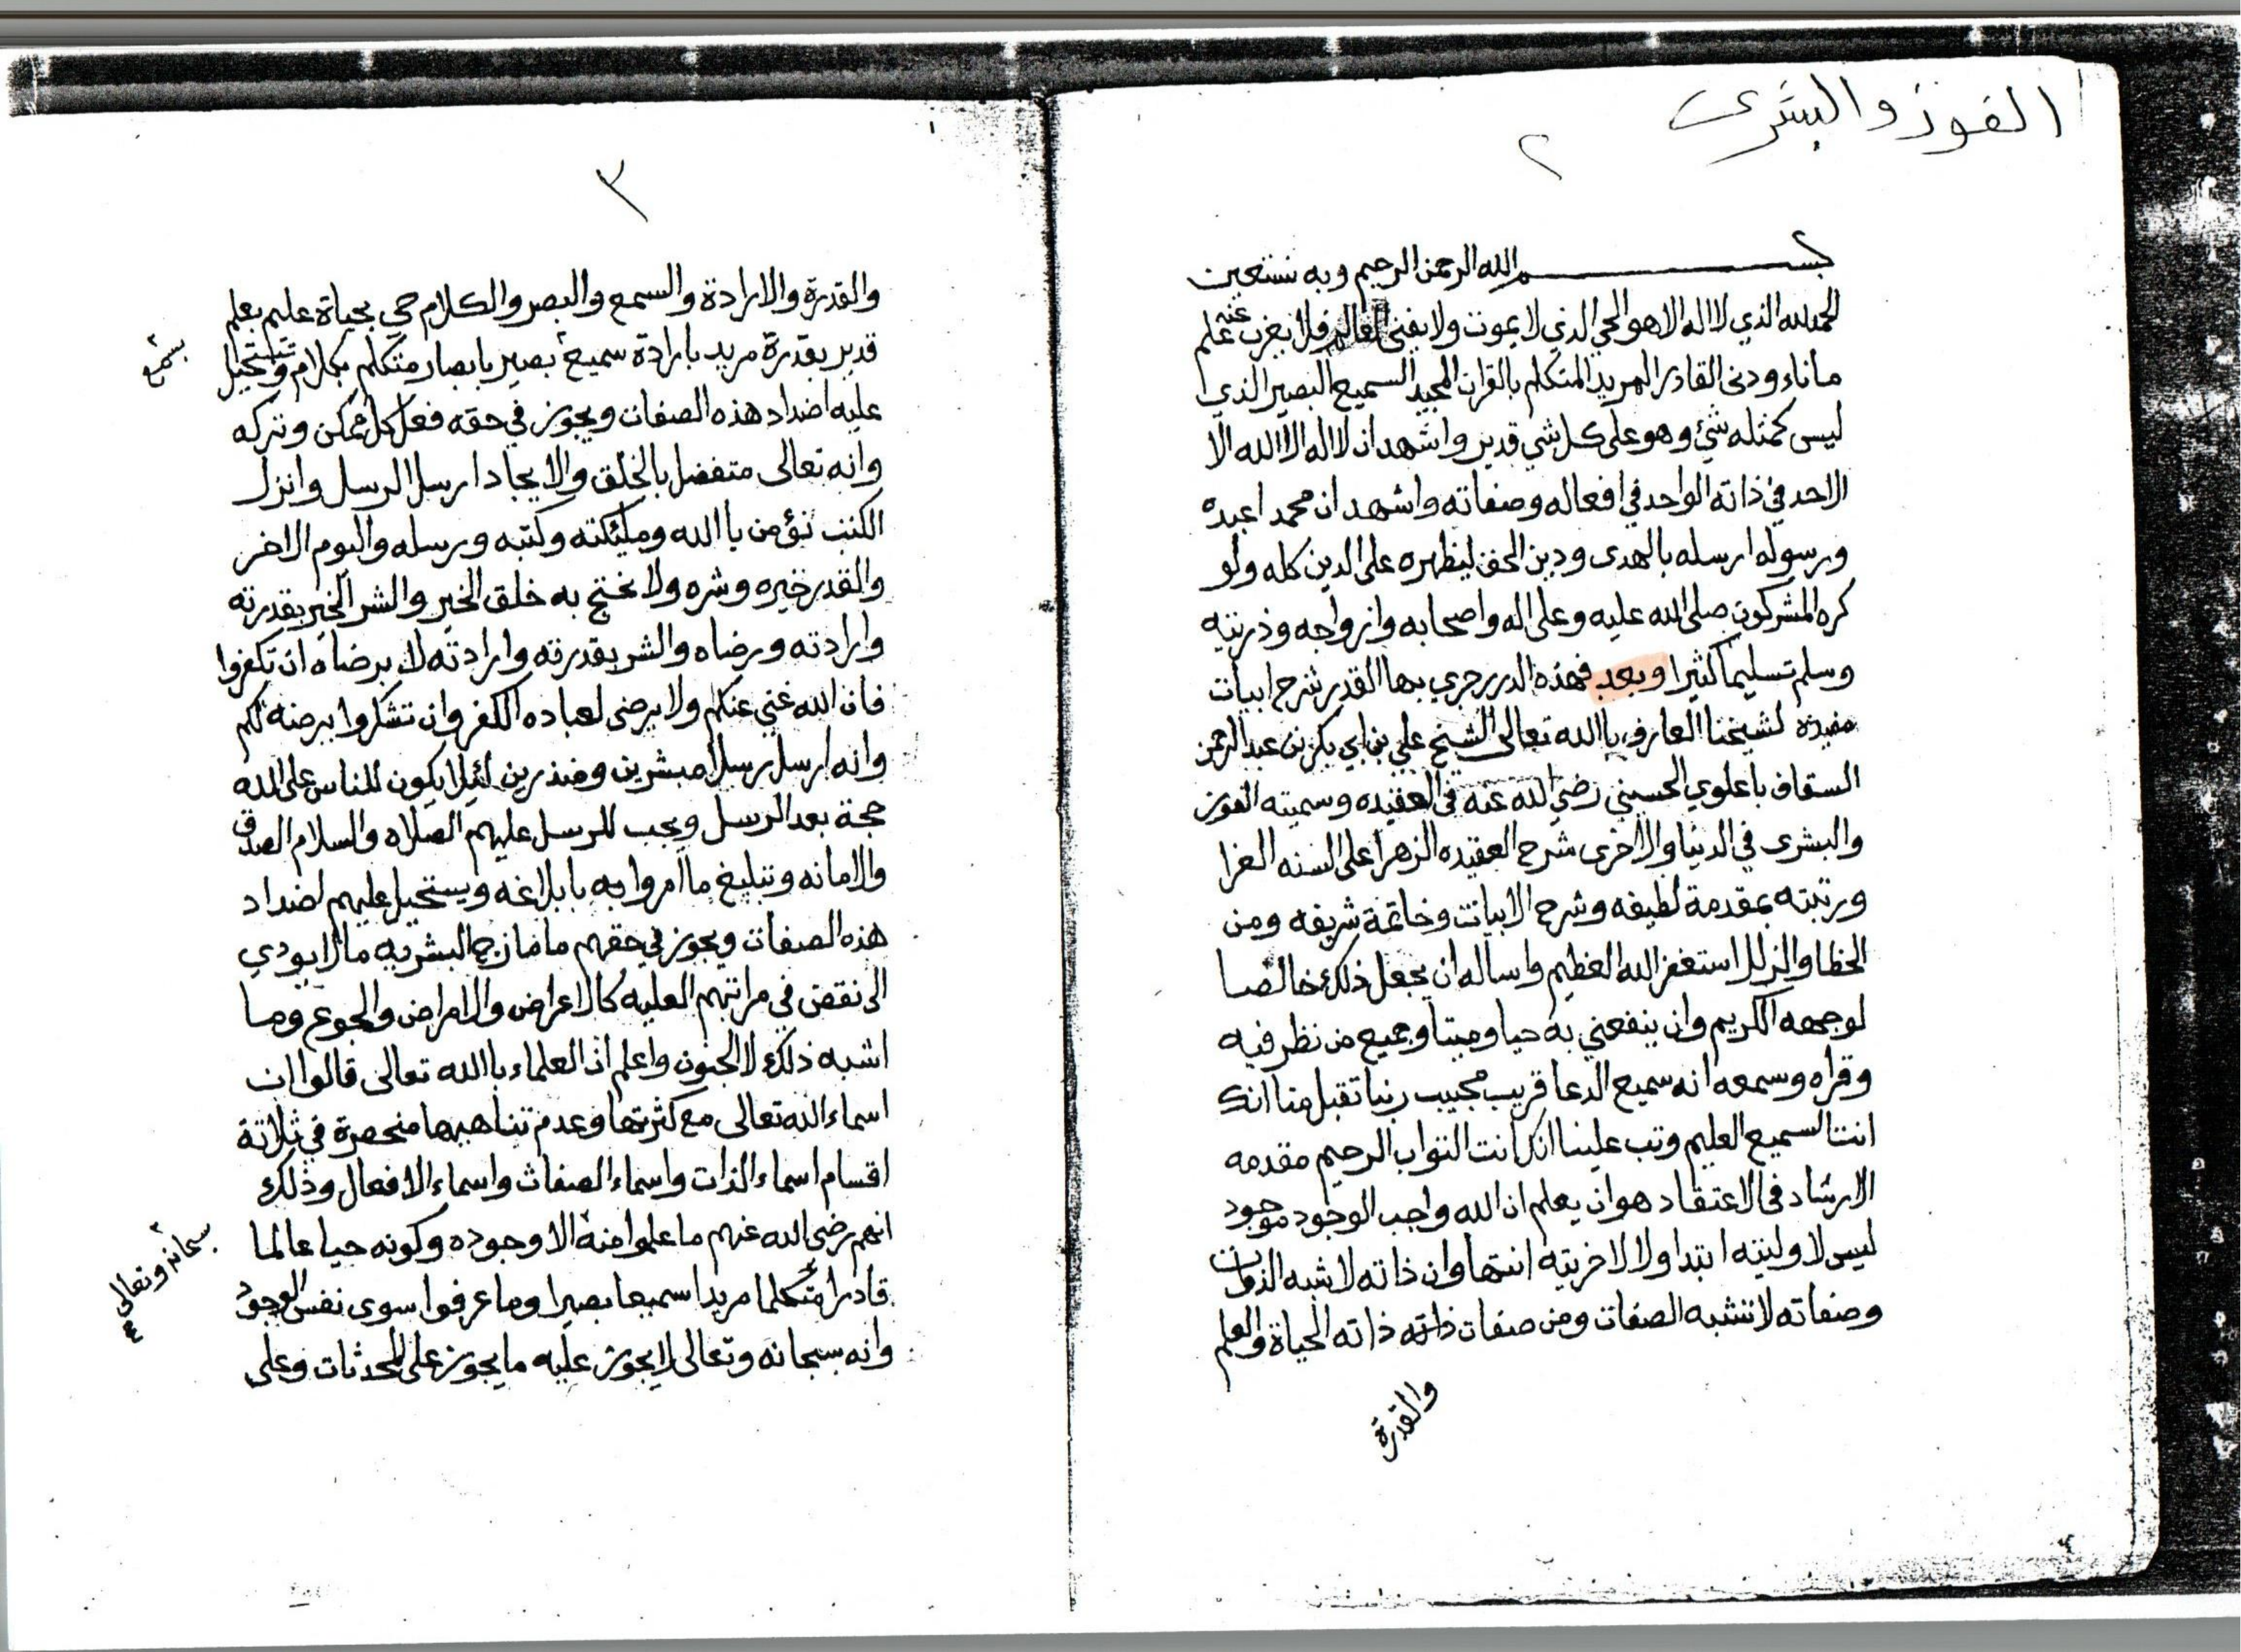 الفوز والبشرى
٢
بسم الله الرحمن الرحيم وبه نستعين
الحمد لله الذي لا اله الا هو الحي الذي لا يموت ولا يفنى العالم فلا يعزب عنه علم
ما ناء ودنى القادر المريد المتكلم بالقران المجيد السميع البصير الذي
ليس كمثله شيء وهو على كل شي قدير واشهد ان لا اله الا الله الا
الاحد في ذاته الواحد في افعاله وصفاته واشهد ان محمدا عبده
ورسوله ارسله بالهدى ودين الحق ليظهره على الدين كله ولو
كره المشركون صلى الله عليه وعلى اله واصحابه وازواجه وذريته
وسلم تسليما كثيرا وبعد فهذه الدرر جرى بها القدر شرح ابيات
مفيدة لشيخنا العارف باالله تعالى الشيخ علي بن ابي بكر بن عبد الرحمن
السقاف باعلوي الحسيني رضي الله عنه في العقيده وسميته الفوز
والبشرى في الدنيا والاخرى شرح العقيده الزهرا على السنه الغرا
ورتبته بمقدمة لطيفه وشرح الابيات وخاتمة شريفه ومن
الخطا والزلل استغفر الله العظيم واساله ان يجعل ذلك خالصا
لوجهه الكريم وان ينفعني به حيا وميتا وجميع من نظر فيه
وقراه وسمعه انه سميع الدعا قريب مجيب ربنا تقبل منا انك
انت السميع العليم وتب علينا انك انت التواب الرحيم مقدمه
الارشاد في الاعتقاد هو ان يعلم ان الله واجب الوجود موجود
ليس لاوليته ابتدا ولا لاخريته انتها وان ذاته لا شبه الذوات
وصفاته لا تشبه الصفات ومن صفات ذاته ذاته الحياة والعلم
والقدرة
٣
والقدرة والارادة والسمع والبصر والكلام حي بحياة عليم بعلم
قدير بقدرة مريد بارادة سميع بصير بابصار متكلم بكلام وتستحيل
بسمع
عليه اضداد هذه الصفات ويجوز في حقه فعل كل ممكن وتركه
وانه تعالى متفضل بالخلق والايجاد ارسل الرسل وانزل
الكتب نؤمن باالله ومليكته وكتبه ورسله واليوم الاخر
والقدر خيره وشره ولا نحتج به خلق الخير والشر الخير بقدرته
وارادته ورضاه والشر بقدرته وارادته لا برضاه ان تكفروا
فان الله غني عنكم ولا يرضى لعباده الكفر وان تشكروا يرضه لكم
وانه ارسل رسلا مبشرين ومنذرين لئلا يكون للناس على الله
حجة بعد الرسل ويجب للرسل عليهم الصلاه والسلام الصدق
والامانه وتبليغ ما امروا به بابلاغه ويستحيل عليهم اضداد
هذه الصفات ويجوز في حقهم ما مازج البشريه مالا يودي
الى نقص في مراتبهم العليه كالاعراض والامراض والجوع وما
اشبه ذلك لا الجنون واعلم ان العلماء باالله تعالى قالوا ان
اسماء الله تعالى مع كثرتها وعدم تناهيها منحصرة في ثلاثة
اقسام اسماء الذات واسماء الصفات واسماء الافعال وذلك
انهم رضي الله عنهم ما علموا منه الا وجوده وكونه حيا عالما
سبحانه وتعالى
قادرا متكلما مريدا سميعا بصيرا وما عرفوا سوى نفس الوجود
وانه سبحانه وتعالى لا يجوز عليه ما يجوز على المحدثات وعلى